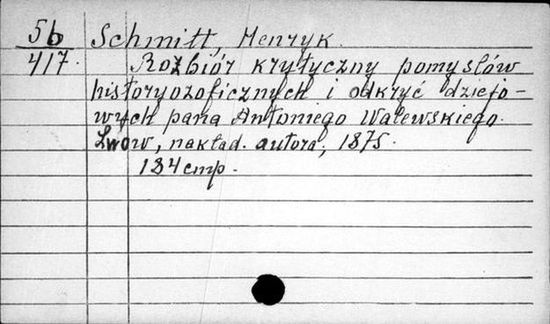 56 Schmitt, Henryk.
417. Rozbiór krytyczny pomysłów
historyozoficznych i odkryć dziejo-
wych pana Antoniego Walewskiego.
Lwów, nakład. autora, 1875.
184 cmp.